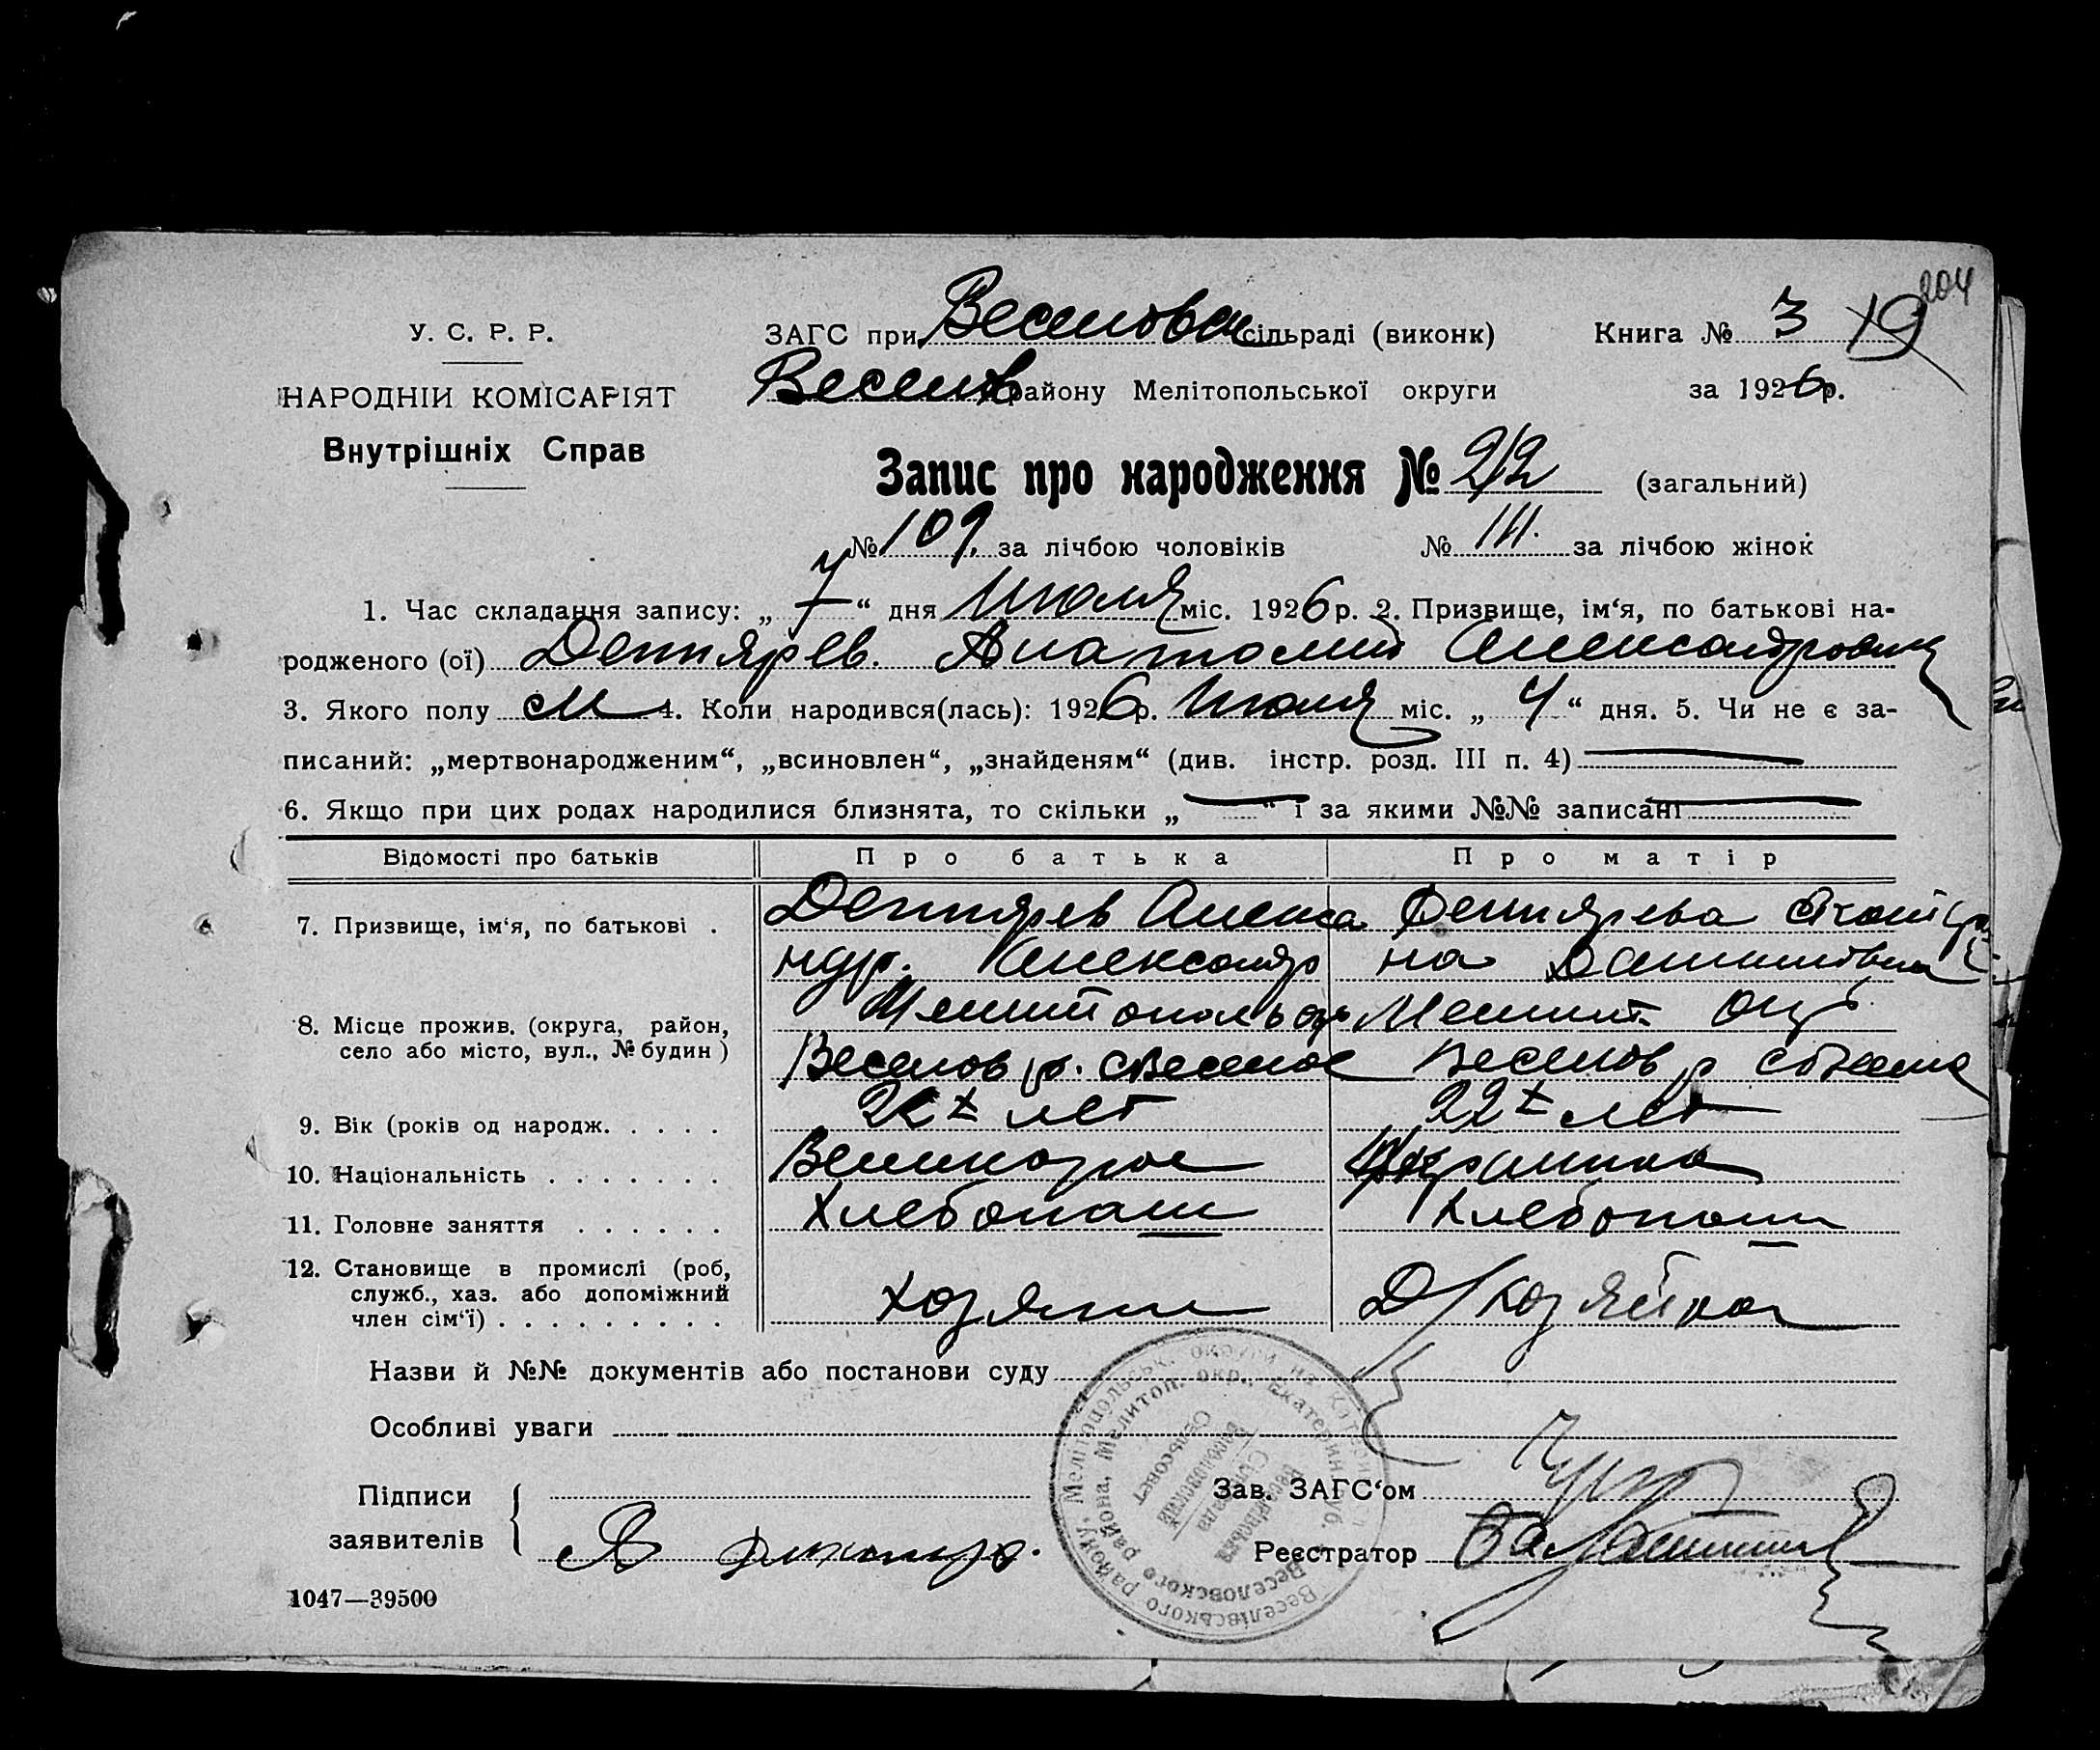 204
У. С. Р. Р.
ЗАГС при Веселовск сільраді (виконк)
Книга № 3 19
НАРОДНІЙ КОМІСАРІЯТ
Веселов району Мелітопольської округи
за 1926р.
Внутрішніх Справ
Запис про народження № 212 (загальний)
№ 109. за лічбою чоловіків № 111. за лічбою жінок
1. Час складання запису: „ 7 “ дня Июля міс. 1926 р. 2. Призвище, ім‘я, по батькові на-
родженого (ої) Дептярев. Анатолий Александрович
3. Якого полу м 4. Коли народився(лась): 1926р. Июля міс. „ 4 “ дня. 5. Чи не є за-
писаний: „мертвонародженим“, „всиновлен“, „знайденям“ (див. інстр. розд. III п. 4)
6. Якщо при цих родах народилися близнята, то скільки „ “ і за якими №№ записані
Відомості про батьків Про батька Про матір
7. Призвище, ім‘я, по батькові . Дептярев Алекса Дептярева Екатери
ндр. Александр на
8. Місце прожив. (округа, район, Мелитополь окр Мелит. окр.
село або місто, вул., № будин) Веселов р. с Веселое Веселов р с Веселое
9. Вік (років од народж. . . . . лет 22х лет
10. Національність . . . . . . . Великорос Украинка
11. Головне заняття . . . . . . Хлебопаш Хлебопаш
12. Становище в промислі (роб,
служб., хаз. або допоміжний
член сім‘ї) . . . . . . . . . хозяин Д/хозяйка
Назви й №№ документів або постанови суду
Особливі уваги
Підписи
заявителів
Зав. ЗАГС‘ом
Реєстратор
1047—39500